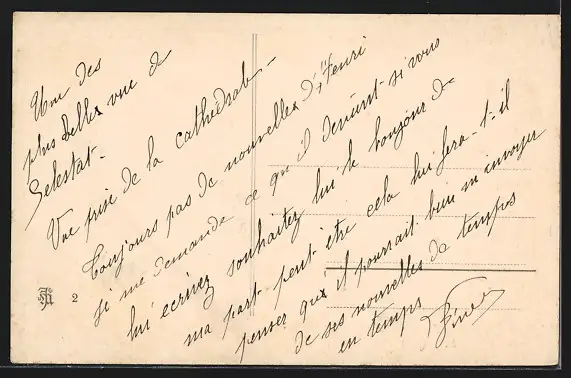 Une des
plus belles vue de
Selestat -
Vue prise de la cathedrale -
Toujours pas de nouvelles d'Henri
si me demande ce qu'il devient - si vous
lui ecrivez souhaitez lui le bonjour de
ma part peut être cela lui fera-t-il
penser qu'il pourrait bien m'envoyer
de ses nouvelles de temps
en temps
2